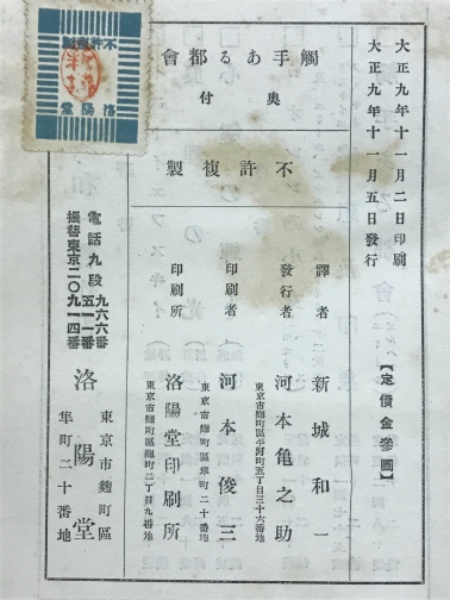 大正九年十一月二日印刷
大正九年十一月五日發行
【定價金參圓】
觸手ある都會
奥付
不許複製
譯者 新城和一
發行者 河本亀之助
東京市麴町區平河町五丁目三十六番地
印刷者 河本俊三
東京市麴町區隼町二十番地
印刷所 洛陽堂印刷所
東京市麴町區麴町二丁目九番地
東京市麴町區
隼町二十番地
洛陽堂
電話九段 九六六番
五一一番
振替東京二〇九一四番
不許複製
洛陽堂